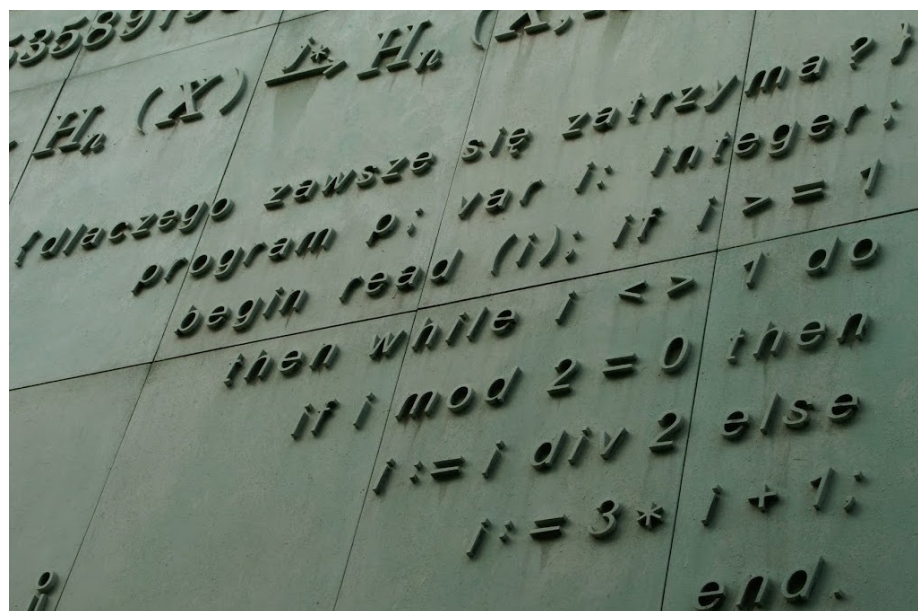 535897
H_n (X) j*, H_n (X,
{dlaczego zawsze się zatrzyma?}
program p; var i: integer;
begin read (i); if i >= 1
then while i <> 1 do
if i mod 2 = 0 then
i:= i div 2 else
i:= 3* i + 1;
end.